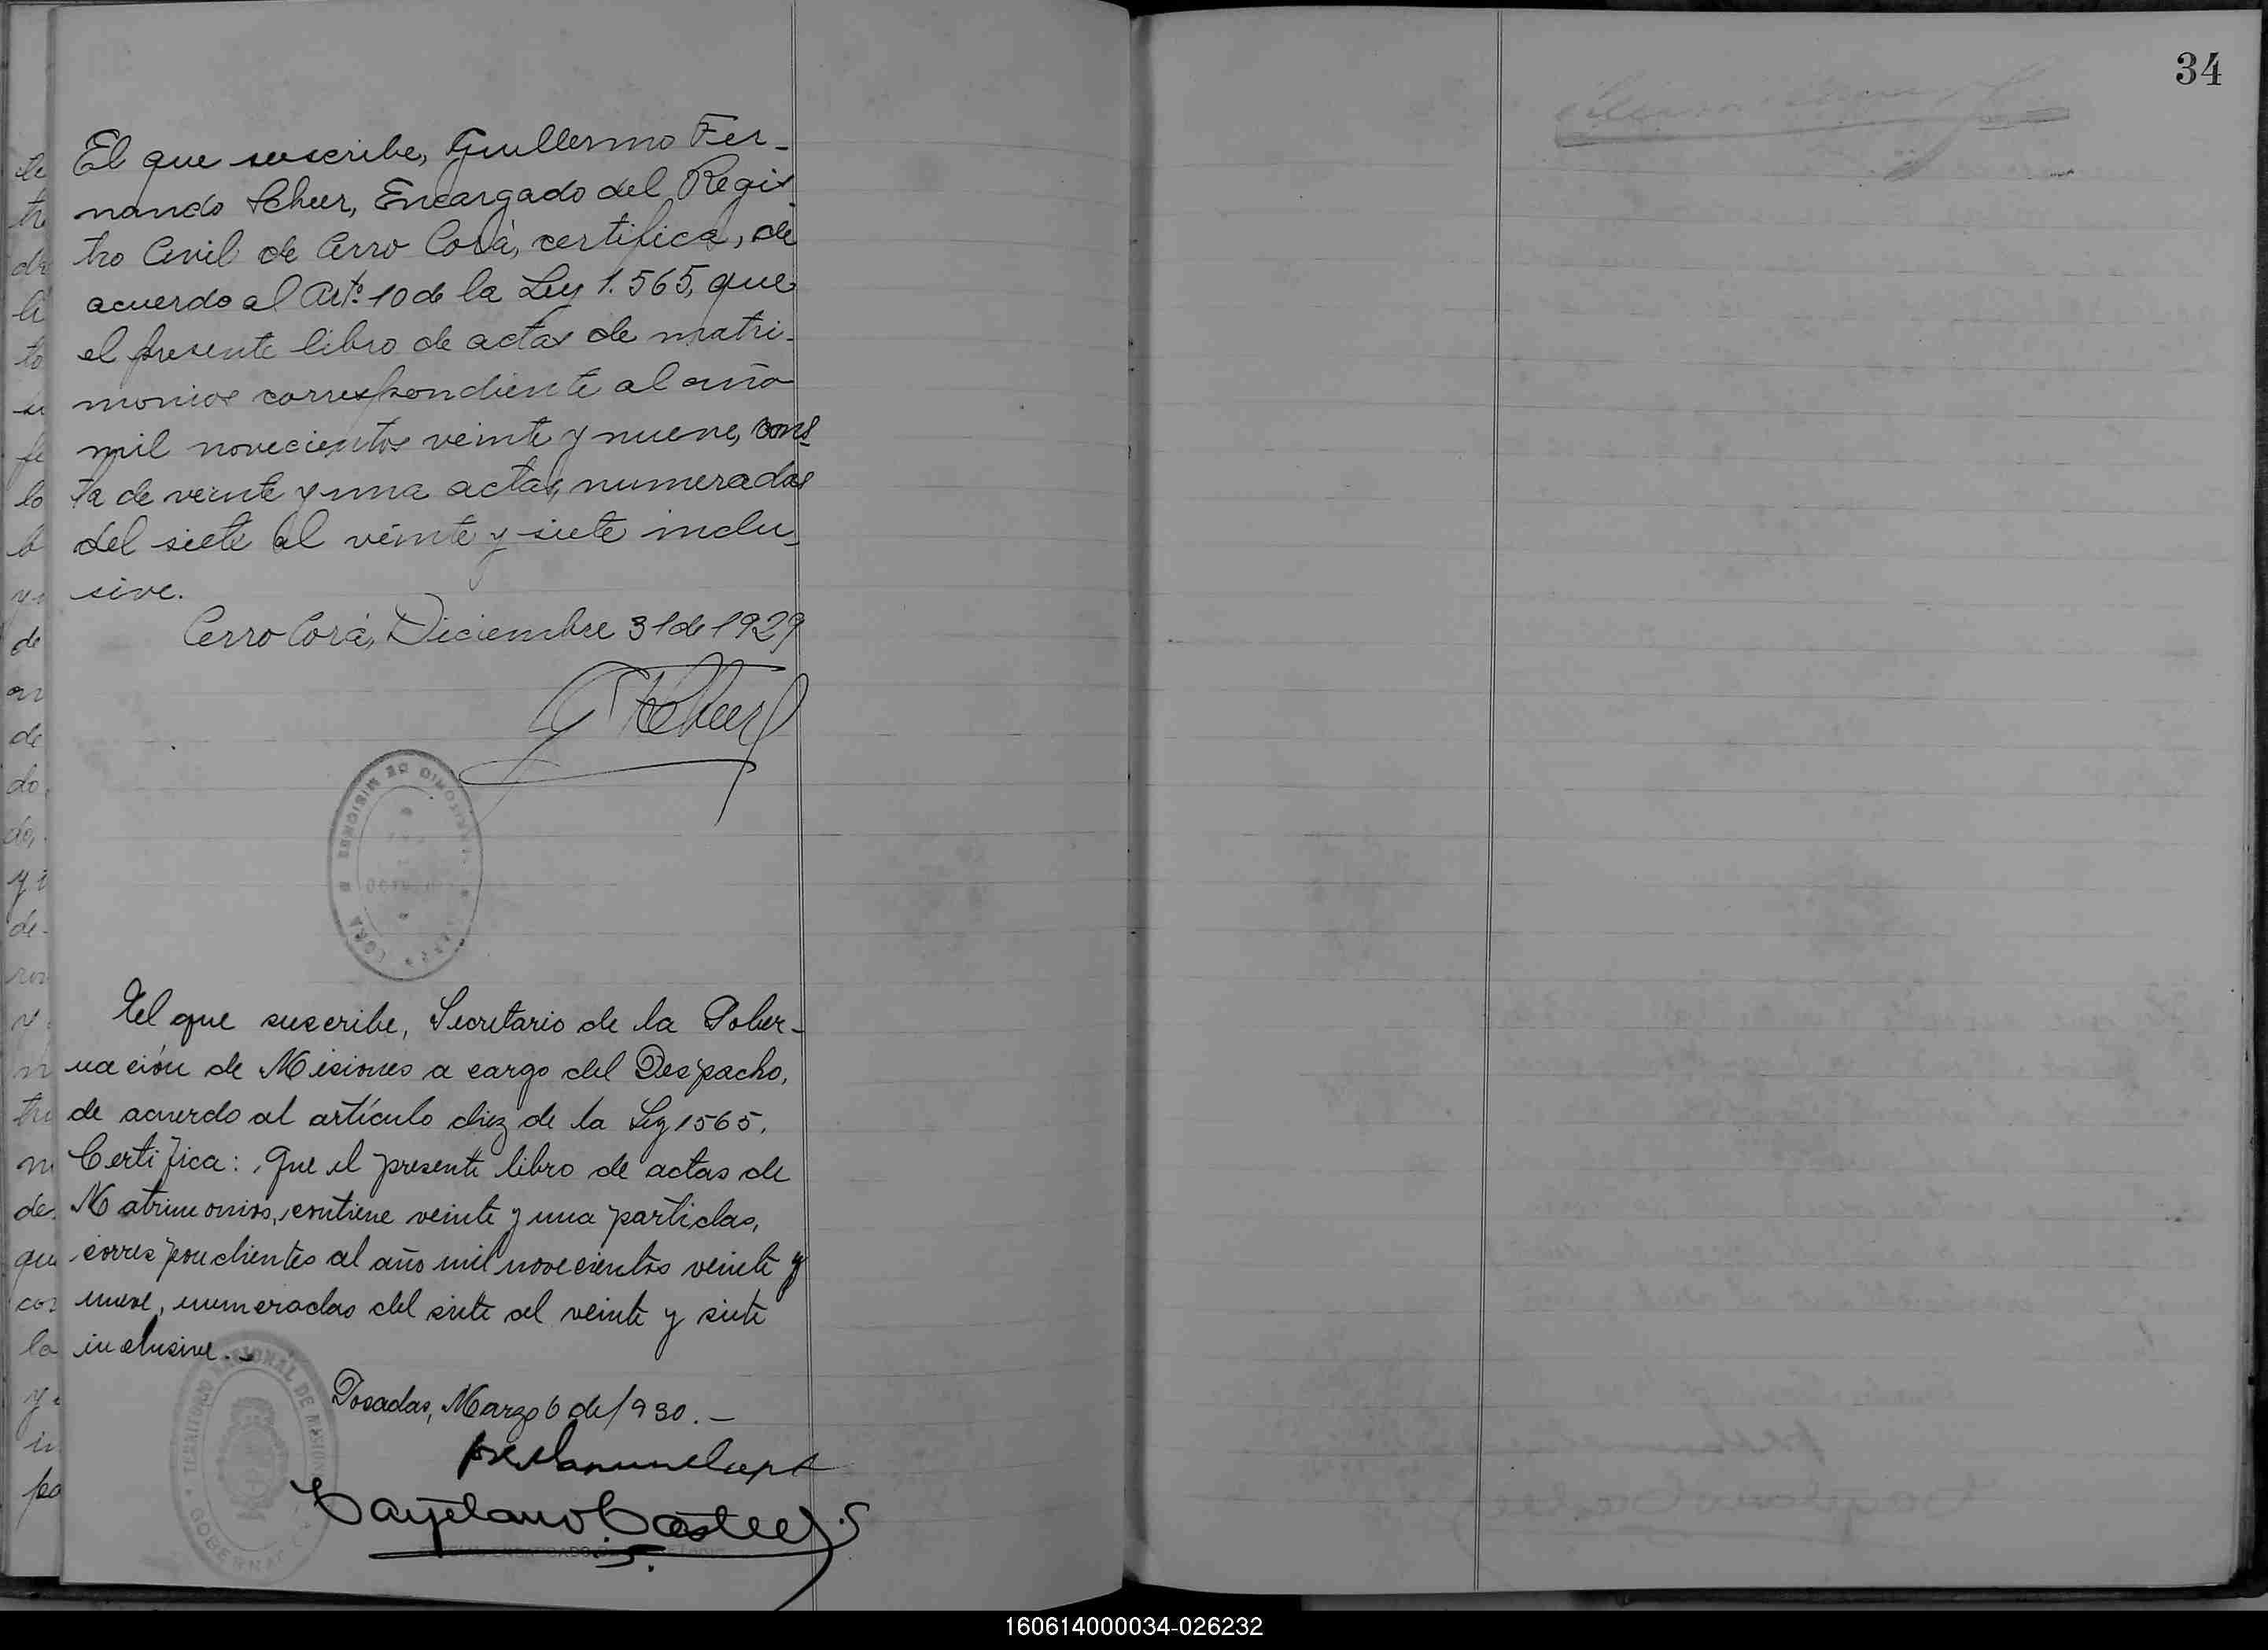 34
El que suscribe, Guillermo Fer-
nando Scheer, Encargado del Regis-
tro Civil de Cerro Corá, certifica, de
acuerdo al Art.º 10 de la Ley 1.565, que
el presente libro de actas de matri-
monios correspondiente al año
mil novecientos veinte y nueve, cons-
ta de veinte y una actas, numeradas
del siete al veinte y siete inclu-
sive.
Cerro Corá, Diciembre 31 de 1929
G Scheer
TERRITORIO DE MISIONES
CERRO CORÁ
El que suscribe, Secretario de la Gober-
nación de Misiones a cargo del Despacho,
de acuerdo al artículo diez de la Ley 1565.
Certifica: Que el presente libro de actas de
Matrimonios, contiene veinte y una partidas,
correspondientes al año mil novecientos veinte y
nueve, numeradas del siete al veinte y siete
inclusive.-
Posadas, Marzo 6 de 1930.-
TERRITORIO NACIONAL DE MISIONES
GOBERNACION
Cayetano Castell
160614000034-026232